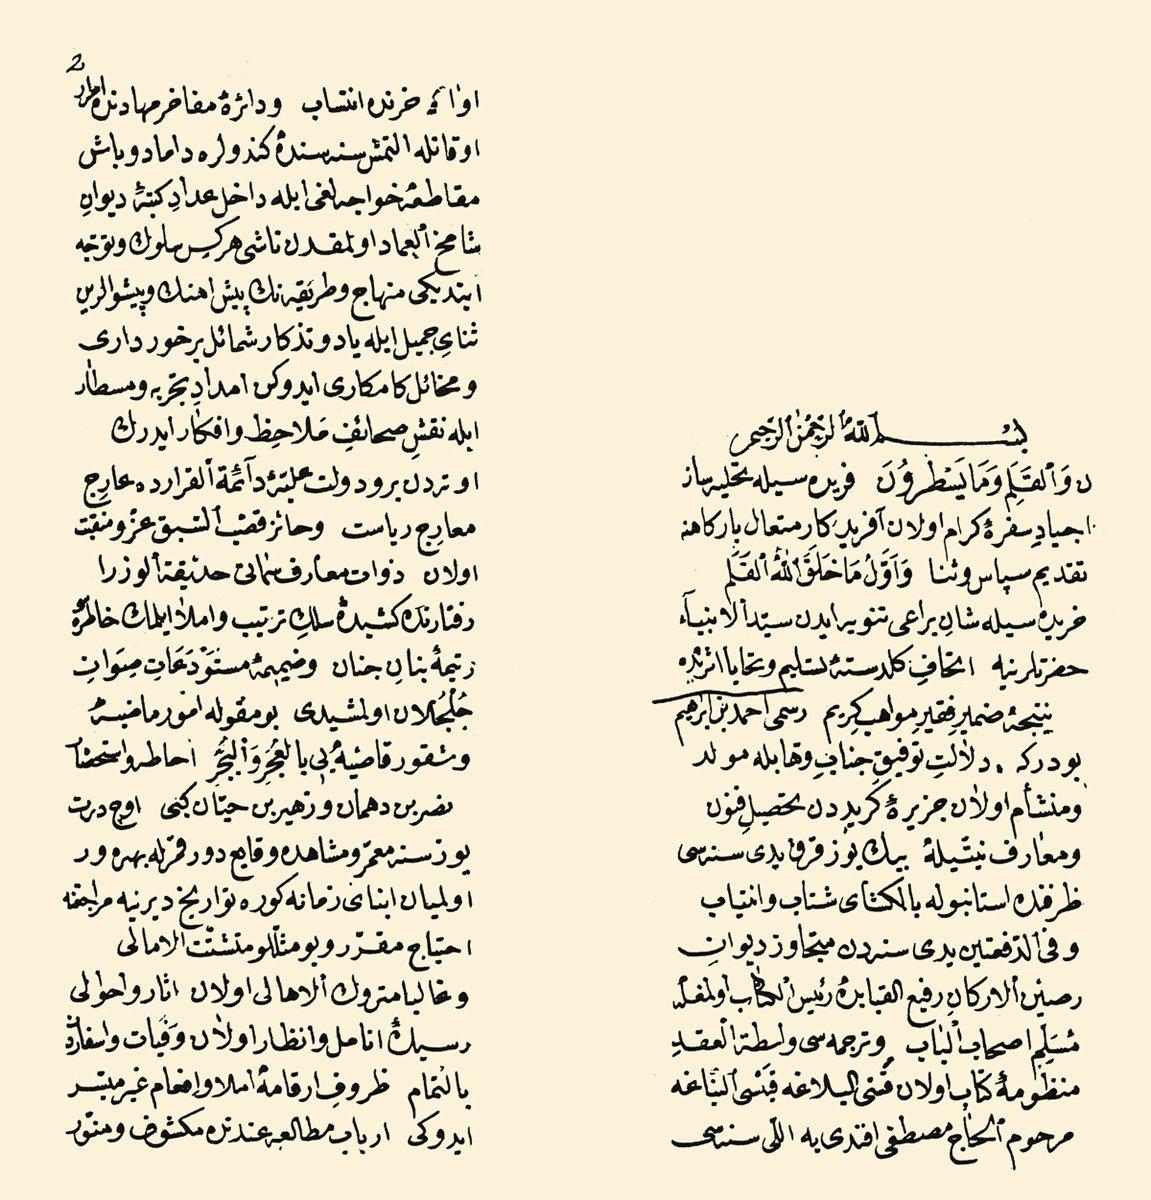 بســـــم الله الرحمن الرحيم
ن وَالقَلَمِ وَمَا يَسْطُرُونَ فريده سيله تحليه ساز
اجيادِ سفرهٔ كرام اولان آفريد كار متعال باركاهنه
تقديم سپاس وثنا وَاَوَّلُ مَا خَلَقَ اللّٰهُ القَلَم
خريده سيله شانِ يراعى تنوير ايدن سيّد الانبيآء
حضرتلرينه اتحافِ كلدستهٔ تسليم وتحايا اثرنده
نتيجهٔ ضميرِ فقيرِ مواهب كريم رسمى احمد بن ابرهيم
بودركه دلالتِ توفيقِ جنابِ وهابله مولد
ومنشأم اولان جزيرهٔ كريددن تحصيلِ فنون
ومعارف نيتيله بيك يوز قرق يدى سنه سى
ظرفنده استانبوله بالكتاى شتاب وانتياب
وفى الدفعتين يدى سنه دن متجاوز ديوانِ
رصين الاركانِ رفيع القبابده رئيس الكتاب اولمغله
مُسَلَّمِ اصحاب الباب وترجمه سى واسطة العقدِ
منظومهٔ كتاب اولان فتى البلاغه قِسّى النباغه
مرحوم الحاج مصطفى افندى يه اللى سنه سى
2
خرنده انتساب ودائرهٔ مفاخر مهادنده امرار
اوقاتله التمش سنه سنده كندولره داماد وباش
مقاطعه خواجه لغى ايله داخل عدادِ كتبهٔ ديوانِ
شامخ العماد اولمقدن ناشى هركس سلوك وتوجه
ايتديكى منهاج وطريقه نك پيش اهنك وپيشوالرين
ثناىِ جميل ايله ياد وتذكار شمائل برخوردارى
ومخائل كامكارى ايدوكن امدادِ تجربه ومسطار
ايله نقشِ صحائفِ مَلاحِظ وافكار ايدرك
اوته دن برو دولت عليّهٔ دآئمة القرارده عارِجِ
معارجِ رياست وحائز قصب السبق عزّ ومنقبت
اولان ذوات معارف سماتى حديقة الوزرا
رفتارنده كشيدهٔ سلكِ ترتيب واملا ايلمك خاطره
رتيمهٔ بنانِ جنان وضميمهٔ مستَوْدَعَاتِ صِنوانِ
جُلجُلان اولمشيدى بو مقوله امور ماضيهٔ
وشقور قاصيهٔ بى بالعُجَرِ وَالبُجَر احاطه واستحضار
نصر بن دهمان وزهير بن حبّان كبى اوچ درت
يوز سنه معمّر ومشاهده وقايع دور قمرله بهره ور
اولميان ابناى زمانه كوره تواريخ ديرينه مراجعته
احتياج مقرّر وبو مثللو متشتّت الامالى
وغالبا متروك الاهالى اولان اثار واحوالى
رسيدهٔ انامل وانظار اولان وَفَيات واسفارده
بالتمام ظروفِ ارقامهٔ املا وافعام غير ميسّر
ايدوكى اربابِ مطالعه عندنده مكشوف ومنوّر